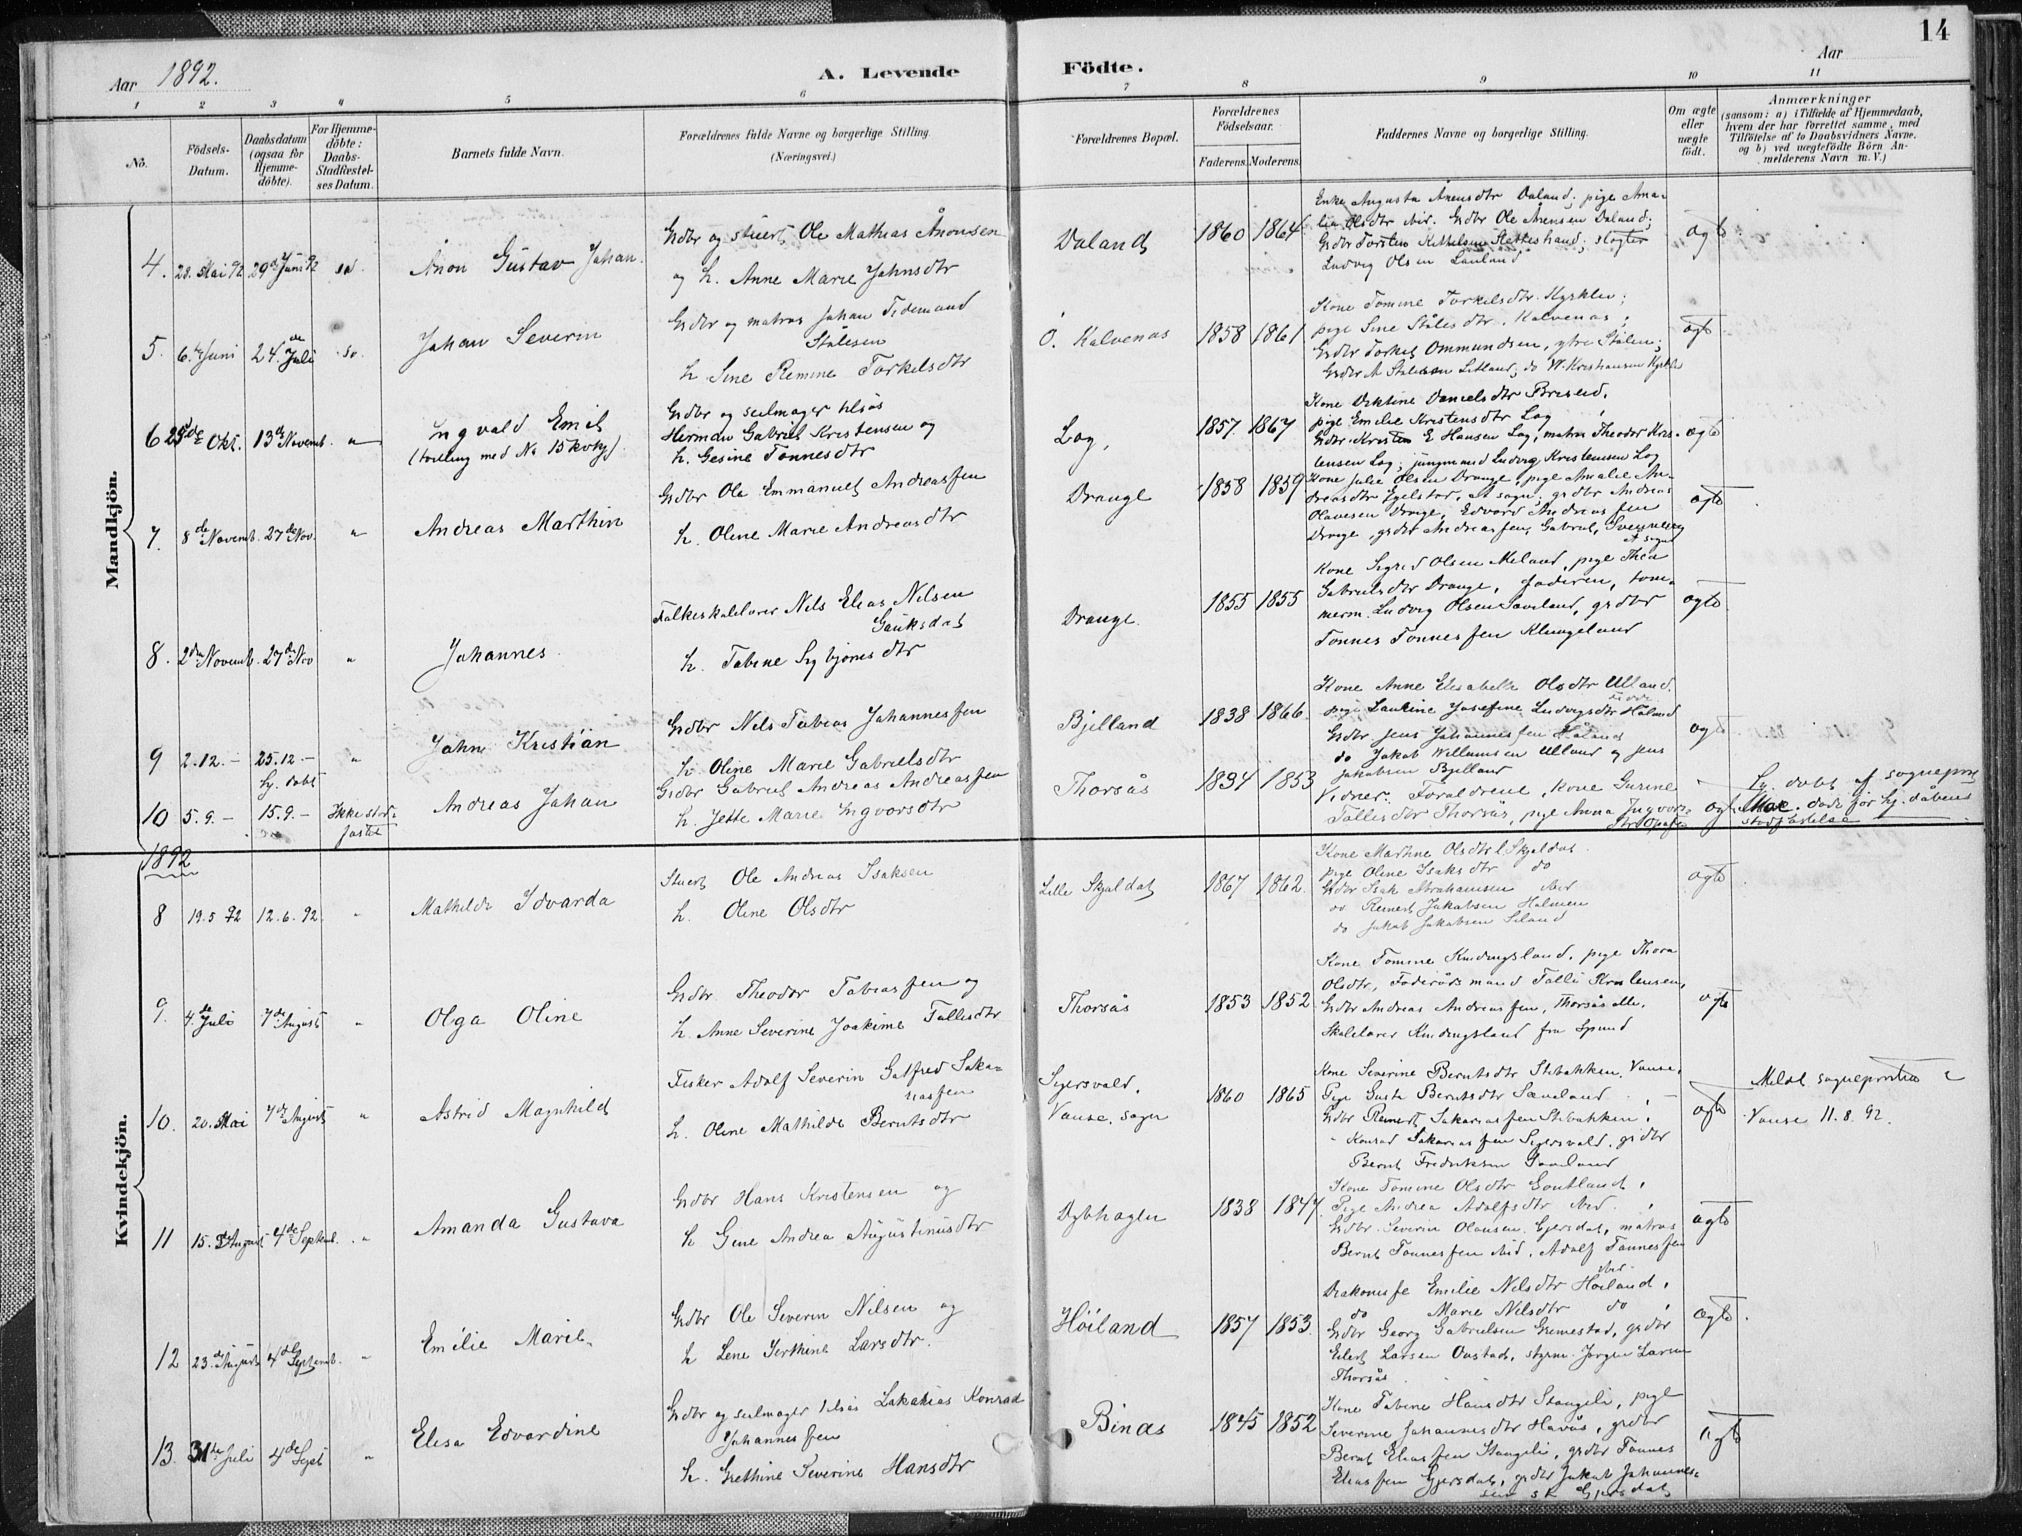 14
Aar 1892.
A. Levende Födte.
Aar
1 2 3 4 5 6 7 8 9 10 11
No.
Födsels-Datum.
Daabsdatum (ogsaa for Hjemmedöbte).
For Hjemmedöbte: Daabs-Stadfæstelses Datum.
Barnets fulde Navn.
Forældrenes fulde Navne og borgerlige Stilling.
(Næringsvei.)
Forældrenes Bopæl.
Forældrenes Födselsaar.
Faderens. Moderens.
Faddernes Navne og borgerlige Stilling.
Om ægte eller uægte födt.
Anmærkninger
(saasom: a) i Tilfælde af Hjemmedaab, hvem der har forrettet samme, med Tilföielse af to Daabsvidners Navne, og b) ved uægtefödte Börn Anmelderens Navn m. V.)
Mandkjön.
4. 28. Mai 92 29de Juni 92 Ånon Gustav Johan
Grdbr og stuert Ole Mathias Ånonsen
og h. Anne Marie Jahnsdtr
Daland 1860 1864
Enke Augusta Ånensdtr Daland; pige Ama-
lia Olsdtr ibid. Grdbr Ole Ånensen Daland;
Grdbr Torsten Kittelsen
Ludvig Olsen
ægte
5. 6te Juni 24de Juli Johan Severin
Grdbr og matros Johan Tidemand
Stålesen
h. Sine Remine Torkelsdtr
Ö. Kalvenas 1858 1861
Kone Tomine Torkelsdtr.
pige Sine Stålesdtr. Kalvenas;
Grdbr Torkel Ommundsen, ytre Stålen;
ægte
6 25de Okt. 13de Novemb. " Ingvald Emil
(tvilling med No 15 kvkj)
Grdbr og seilmager
Herman Gabriel Kristensen og
h. Gesine Tönnesdtr
Log, 1857. 1867
Kone Dektine Danielsdtr Briseid.
pige Emilie Kristensdtr Log
Grdbr. Kristen E Hansen Log, matros Theodor Kris-
tensen Log; jungmand Ludvig Kristensen Log
ægte
7. 8de Novemb. 27de Nov. " Andreas Marthin
Grdbr Ole Emmanuel Andreassen
h. Oline Marie Andreasdtr
Drange 1858 1859
Kone Julie Olsen Drange, pige Amalie An-
dreasdtr Egelstad, sogn; grdbr Andreas
Olavesen Drange, Edvard Andreassen
Drange, grdbr Andreassen, Gabriel,
ægte
8. 2den Novemb. 27de Nov " Johannes
Folkeskolelærer Nils Elias Nilsen
Gauksdal
h. Tobine Sigbjörnsdtr
Drange. 1855 1855
Kone Sigrid Olsen Meland, pige Thea
Gabrielsdtr Drange, faderen, töm-
merm. Ludvig Olsen, grdbr
Tönnes Tönnessen Klungeland
ægte
9 2.12.- 25.12.- " Johne Kristian
Grdbr Nils Tobias Johannessen
h. Oline Marie Gabrielsdtr
Bjelland 1838 1866.
Kone Anne Elisabeth Olsdtr Ulland.
pige Laurine Josefine Ludvigsdtr Høland
Grdbr Jens Johannessen
do Jakob Willumsen Ulland og Jens
Jakobsen Bjelland
ægte
10 5.9.- hj. döbt 15.9.- Ikke stad-
fæstet
Andreas Johan
Grdbr Gabriel Andreas Andreassen
h. Jette Marie Ingvorsdtr
Thorsås 1834 1853
Vidner: Forældrene, Kone Gurine
Tollisdtr Thorsås, pige Anna Ingvors-
ægte
Hj. döbt af sognepre
Moe. döde för hj. dåbens
stadfæstelse
1892
Kvindekjön.
8 19.5 92 12.6.92. " Mathilde Edvarda
Stuert Ole Andreas Isaksen
h. Oline Olsdtr
Lille Skjoldal 1867 1862.
Kone Martine Olsdtr l. Skjoldal.
pige Oline Isaksdtr do
Grdbr Isak Abrahamsen ibid
do Reinert Jakobsen
do Jakob Jakobsen
ægte
9. 4de Juli 7de August " Olga Oline
Grdbr. Theodor Tobiassen og
h. Anne Severine Joakime Tollisdtr
Thorsås 1853 1852.
Kone Tomine Kindingsland, pige Thora
Olsdtr, Föderådsmand Tolli
Grdbr Andreas Andreassen, Thorsås
Skolelærer Kindingsland fra Spind
ægte
10. 20. Mai 7de August " Astrid Magnhild
Fisker Adolf Severin Galfred Saka-
riassen
h. Oline Mathilde Berntsdtr
Sigersvold.
Vanse. sogn 1860 1865
Kone Severine Berntsdtr Stibakken, Vanse,
Pige Gusta Berntsdtr
Grdbr Reinert Sakariassen Stibakken,
" Konrad Sakariassen Sigersvold, grdbr
Bernt Fredriksen
ægte
Meldt sognepresten i
Vanse 11.8.92.
11 15. August 4de Septemb. " Amanda Gustava
Grdbr Hans Kristensen og
h Gine Andrea Augustinusdtr
Dybhagen 1838 1847.
Kone Tomine Olsdtr
Pige Andrea Adolfsdtr ibid.
Grdbr. Severin Olausen, Gjersdal, matros
Bernt Tönnessen ibid, Adolf Tönnessen
ibid.
ægte
12 23de August 4de Septemb. " Emilie Marie
Grdbr Ole Severin Nilsen og
h Lene Serthine Larsdtr.
Höiland 1857 1853.
Diakonisse Emilie Nilsdtr Höiland,
do Marie Nilsdtr do
Grdbr Georg Gabrielsen, grdbr
Eilert Larsen, styrm. Jörgen Larsen
Thorsås
ægte.
13. 31te Juli 4de Sept " Elisa Edvardine
Grdbr og seilmager Sakarias Konrad
Johannessen
h. Grethine Severine Hansdtr
Binas 1845 1852
Kone Tobine Hansdtr Stangeli, pige
Severine Johannesdtr, grdbr
Bernt Eliassen Stangeli, grdbr Tönnes
Eliassen Gjersdal, grdbr Jakob Johannes-
sen Gjersdal
ægte